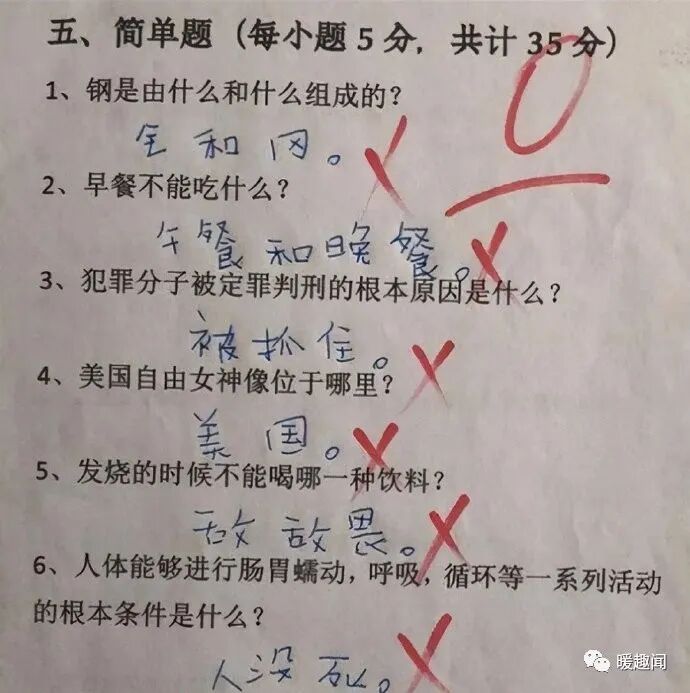 五、简单题（每小题5分，共计35分）
0
1、钢是由什么和什么组成的？
钅和冈。
2、早餐不能吃什么？
午餐和晚餐。
3、犯罪分子被定罪判刑的根本原因是什么？
被抓住。
4、美国自由女神像位于哪里？
美国。
5、发烧的时候不能喝哪一种饮料？
敌敌畏。
6、人体能够进行肠胃蠕动，呼吸，循环等一系列活动
的根本条件是什么？
人没死。
暖趣闻